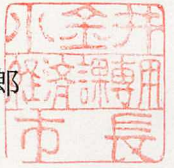 小金井
郎
経済課専用
市長